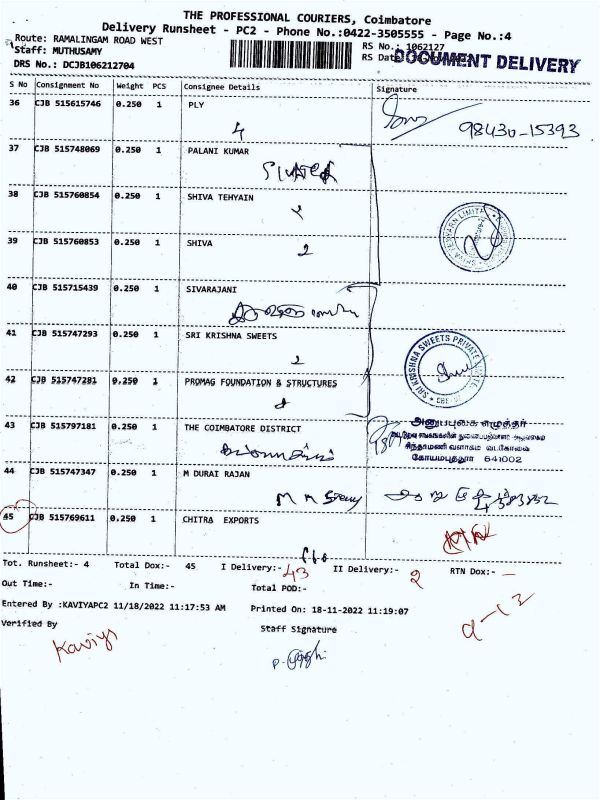 THE PROFESSIONAL COURIERS, Coimbatore
Delivery Runsheet - PC2 - Phone No.:0422-3505555 - Page No.:4
Route: RAMALINGAM ROAD WEST
RS No.: 1062127
Staff: MUTHUSAMY
RS Dat
DOCUMENT DELIVERY
DRS No.: DCJB106212704
S No Consignment No Weight PCS Consignee Details Signature
36 CJB 515615746 0.250 1 PLY
98430-15393
37 CJB 515748069 0.250 1 PALANI KUMAR
38 CJB 515760854 0.250 1 SHIVA TEHYAIN
39 CJB 515760853 0.250 1 SHIVA
40 CJB 515715439 0.250 1 SIVARAJANI
41 CJB 515747293 0.250 1 SRI KRISHNA SWEETS
SRI KRISHNA SWEETS PRIVATE LIMITED
42 CJB 515747281 0.250 1 PROMAG FOUNDATION & STRUCTURES
43 CJB 515797181 0.250 1 THE COIMBATORE DISTRICT
அனுப்புகை எழுத்தர்
சிந்தாமணி வளாகம் வடகோவை
கோயமுத்தூர் 641002
44 CJB 515747347 0.250 1 M DURAI RAJAN
45 CJB 515769611 0.250 1 CHITRA EXPORTS
Tot. Runsheet:- 4 Total Dox:- 45 I Delivery:- 43 II Delivery:- 2 RTN Dox:- –
Out Time:- In Time:- Total POD:-
Entered By :KAVIYAPC2 11/18/2022 11:17:53 AM Printed On: 18-11-2022 11:19:07
Verified By Staff Signature
Kaviya